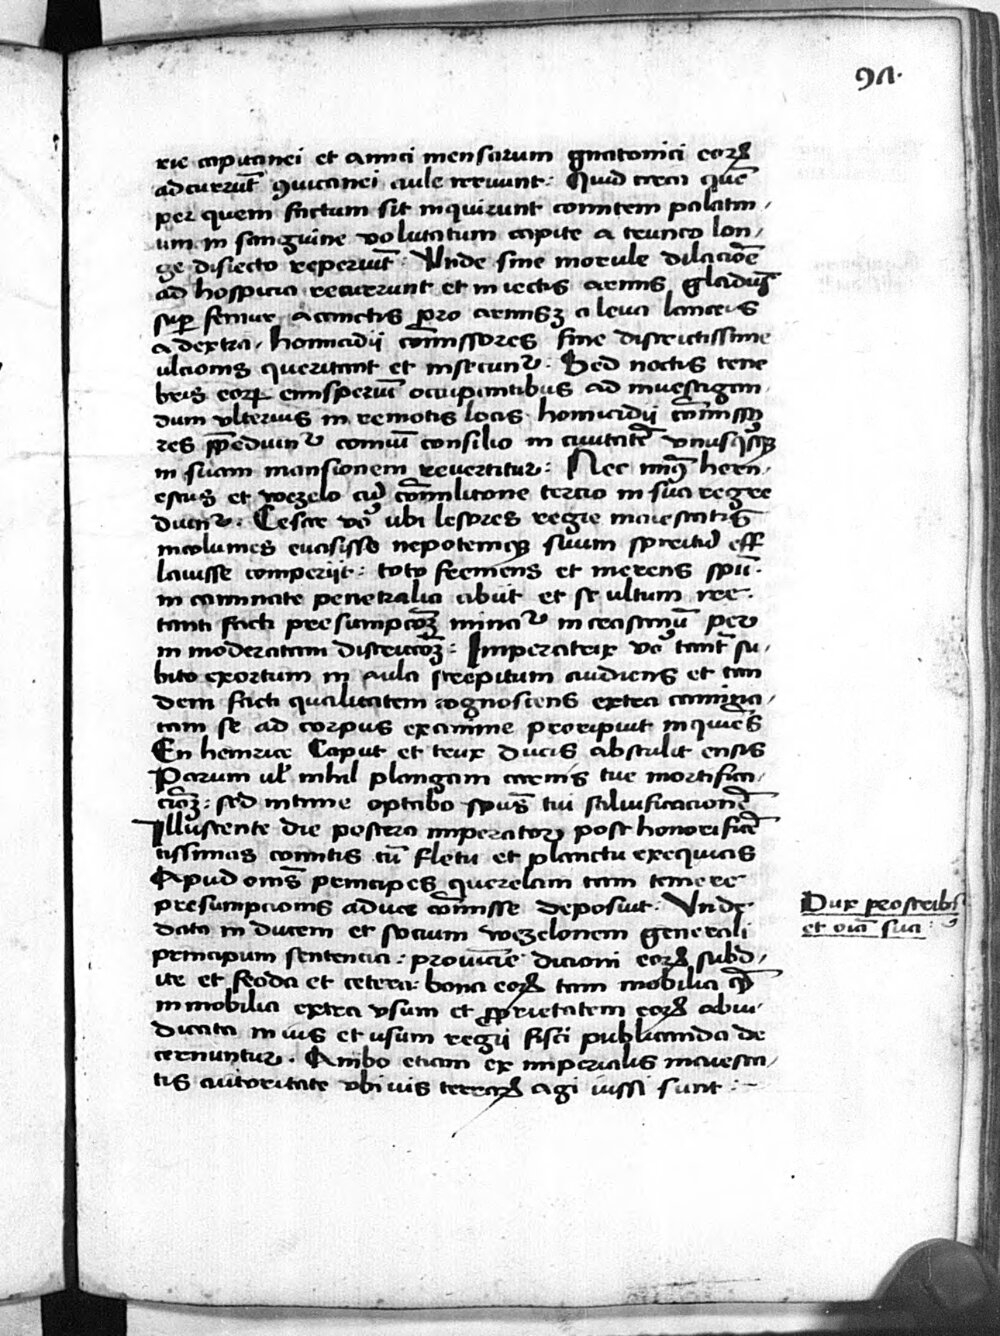 91.
rie capitanei et amici mensarum gnatonici eorꝝ
adcurrūt ꝯuicanei aule reruunt: Quid circa quē
per quem factum sit inquirunt comitem palatin/
um in sanguine volutatum capite a trunco lon/
ge disiecto reperiūt: Unde sine morule dilacōe
ad hospicia recurrunt et iniectis armis gladijs
suꝑ femur accinctis pro armisꝫ a leua lanceis
a dextra, homicidij cōmissores sine districtissime
ulcionis queritant et insecūtur. Sed noctis tene
bris eorꝝ emisperiū occupantibus ad inuestigan/
dum vlterius in remotis locis homicidij cōmisso
res p̄peduūtur comūi consilio in ciuitatē vnusq̇sqꝫ
in suam mansionem reuertitur: Nec min9 hern/
estus et wezelo cū cōmilitone tercio in sua regre
diūtur. Cesar vō ubi lesores regie maiestatis
incolumes euasisse nepotemqꝫ suum spiritū eff
lauisse comperijt: toto fremens et merens spū.
in caminate penetralia abijt et se ultum ire
tanti facti presumpcōꝫ minatur in crastinū per
in moderatam districcōꝫ: Imperatrix vō tantū su/
bito exortum in aula strepitum audiens et tan
dem facti qualitatem cognoscens extra camina/
tam se ad corpus examine proripuit inquiēs
En heinrice Caput et trux ducis abstulit ensis
Parum ul nihil plangam carnis tue mortifica/
cōꝫ: sed intime optabo spūs tui saluificacionē
Illustente die postera imperator post honorificē
tissimas comitis cū fletu et planctu exequias
Apud omēs principes querelam tam temere
presumpcionis a duce cōmisse deposuit. Unde
data in ducem et socium wezelonem generali
principum sentencia: prouincie dicioni eorꝝ subd/
ite et feoda et cetera: bona eorꝝ tam mobilia q̄
inmobilia extra vsum et ꝓprietatem eorꝝ abiu/
dicata in ius et usum regij fisci publicanda de
cernuntur. Ambo etiam ex imperialis maiesta/
tis autoritate vbiuis terrarꝝ agi iussi sunt :~
Dux proscribit̄
et oīa sua :